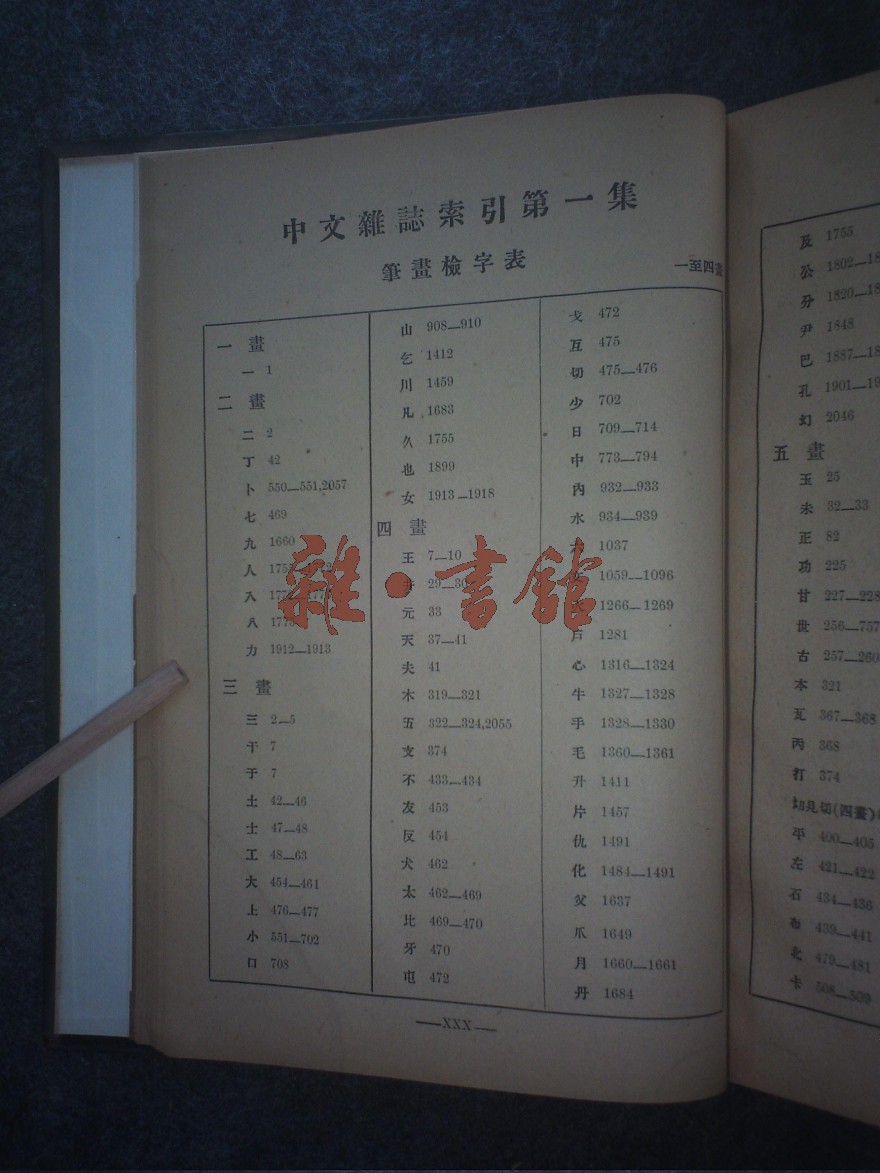 中文雜誌索引第一集
筆畫檢字表
一至四畫
一畫
一 1
二畫
二 2
丁 42
卜 550—551,2057
七 469
九 1660
人
入
八
力 1912—1913
三畫
三 2—5
干 7
于 7
土 42—46
士 47—48
工 48—63
大 454—461
上 476—477
小 551—702
口 708
山 908—910
乞 1412
川 1459
凡 1683
久 1755
也 1899
女 1913—1918
四畫
王 7—10
29—30
元 33
天 37—41
夫 41
木 319—321
五 322—324,2055
支 374
不 433—434
友 453
反 454
犬 462
太 462—469
比 469—470
牙 470
屯 472
戈 472
互 475
切 475—476
少 702
日 709—714
中 773—794
內 932—933
水 934—939
六 1037
1059—1096
1266—1269
戶 1281
心 1316—1324
牛 1327—1328
手 1328—1330
毛 1360—1361
升 1411
片 1457
仇 1491
化 1484—1491
父 1637
爪 1649
月 1660—1661
丹 1684
—XXX—
及 1755
公 1802—18
分 1820—18
尹 1848
巴 1887—18
孔 1901—19
幻 2046
五畫
玉 25
未 32—33
正 82
功 225
甘 227—228
世 256—757
古 257—260
本 321
瓦 367—368
丙 368
打 374
切見切(四畫)
平 400—405
左 421—422
石 434—436
布 439—441
北 479—481
卡 508—509
雜·書館